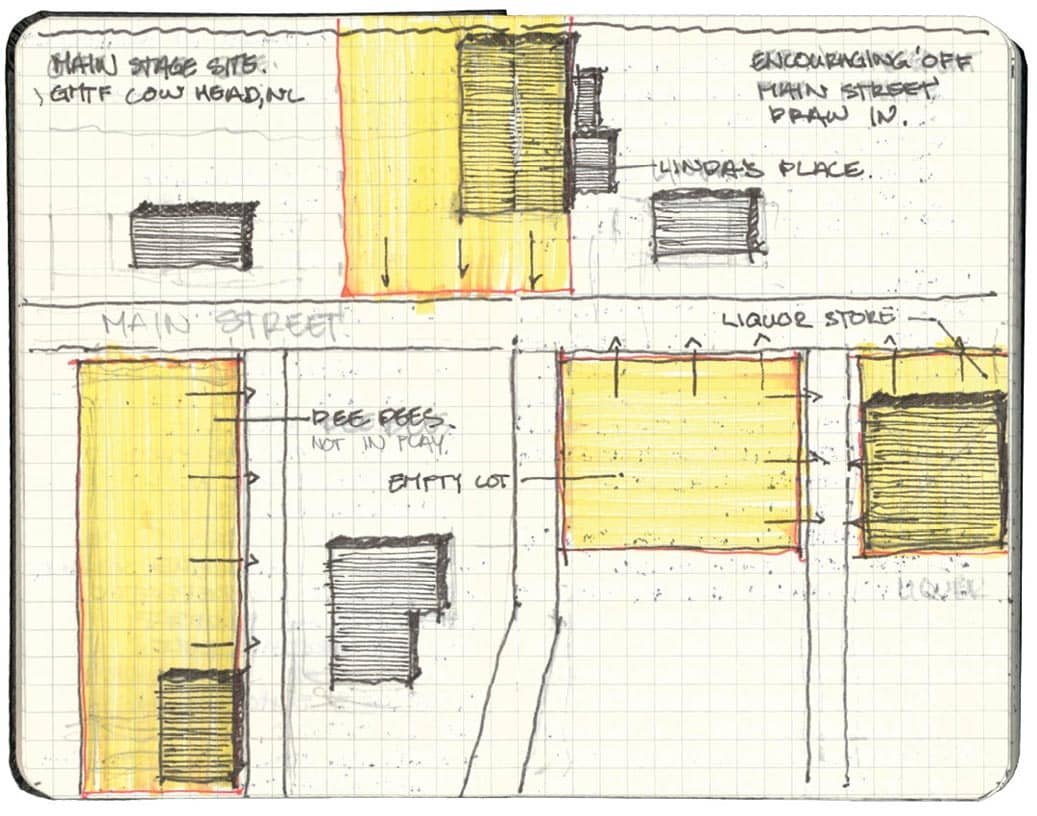 MAIN STAGE SITE.
GMTF COW HEAD, NL
ENCOURAGING 'OFF
MAIN STREET'
DRAW IN.
LINDA'S PLACE.
MAIN STREET
LIQUOR STORE
DEE DEES.
NOT IN PLAY.
EMPTY LOT